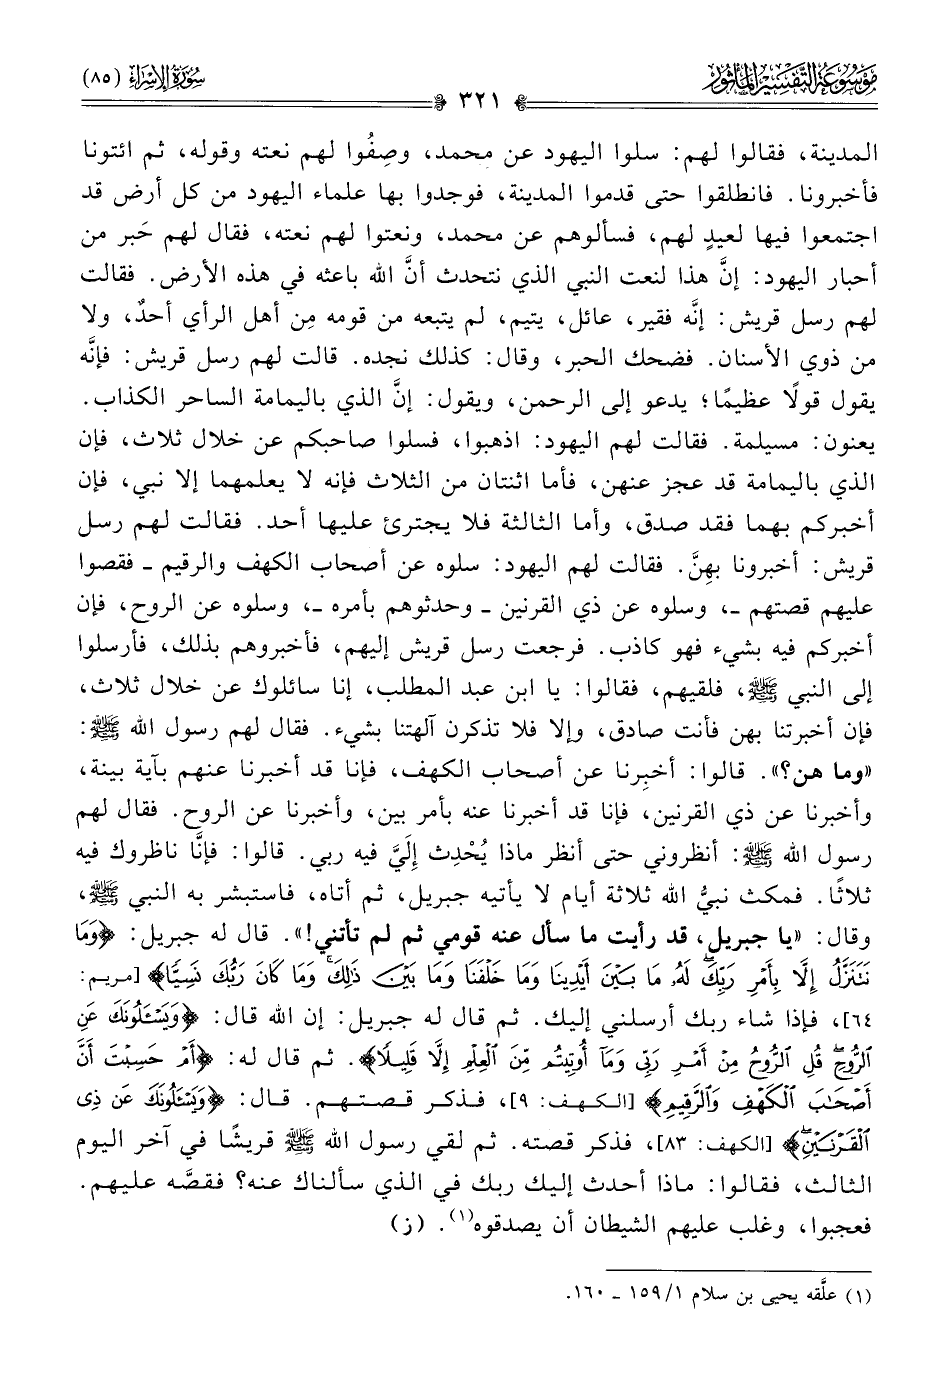 مَوْسُوعَة التَّفْسِير المَأْثُور
سُورَة الإِسْرَاء (٨٥)
٣٢١
المدينة، فقالوا لهم: سلوا اليهود عن محمد، وصِفُوا لهم نعته وقوله، ثم ائتونا
فأخبرونا. فانطلقوا حتى قدموا المدينة، فوجدوا بها علماء اليهود من كل أرض قد
اجتمعوا فيها لعيدٍ لهم، فسألوهم عن محمد، ونعتوا لهم نعته، فقال لهم حَبر من
أحبار اليهود: إنَّ هذا لنعت النبي الذي نتحدث أنَّ الله باعثه في هذه الأرض. فقالت
لهم رسل قريش: إنَّه فقير، عائل، يتيم، لم يتبعه من قومه مِن أهل الرأي أحدٌ، ولا
من ذوي الأسنان. فضحك الحبر، وقال: كذلك نجده. قالت لهم رسل قريش: فإنَّه
يقول قولًا عظيمًا؛ يدعو إلى الرحمن، ويقول: إنَّ الذي باليمامة الساحر الكذاب.
يعنون: مسيلمة. فقالت لهم اليهود: اذهبوا، فسلوا صاحبكم عن خلال ثلاث، فإن
الذي باليمامة قد عجز عنهن، فأما اثنتان من الثلاث فإنه لا يعلمهما إلا نبي، فإن
أخبركم بهما فقد صدق، وأما الثالثة فلا يجترئ عليها أحد. فقالت لهم رسل
قريش: أخبرونا بهِنَّ. فقالت لهم اليهود: سلوه عن أصحاب الكهف والرقيم ـ فقصوا
عليهم قصتهم ـ، وسلوه عن ذي القرنين ـ وحدثوهم بأمره ـ، وسلوه عن الروح، فإن
أخبركم فيه بشيء فهو كاذب. فرجعت رسل قريش إليهم، فأخبروهم بذلك، فأرسلوا
إلى النبي ﷺ، فلقيهم، فقالوا: يا ابن عبد المطلب، إنا سائلوك عن خلال ثلاث،
فإن أخبرتنا بهن فأنت صادق، وإلا فلا تذكرن آلهتنا بشيء. فقال لهم رسول الله ﷺ:
«وما هن؟». قالوا: أخبِرنا عن أصحاب الكهف، فإنا قد أخبرنا عنهم بآية بينة،
وأخبرنا عن ذي القرنين، فإنا قد أخبرنا عنه بأمر بين، وأخبرنا عن الروح. فقال لهم
رسول الله ﷺ: أنظروني حتى أنظر ماذا يُحْدِث إِلَيَّ فيه ربي. قالوا: فإنَّا ناظروك فيه
ثلاثًا. فمكث نبيُّ الله ثلاثة أيام لا يأتيه جبريل، ثم أتاه، فاستبشر به النبي ﷺ،
وقال: «يا جبريل، قد رأيت ما سأل عنه قومي ثم لم تأتني!». قال له جبريل: ﴿وَمَا
نَتَنَزَّلُ إِلَّا بِأَمْرِ رَبِّكَ ۖ لَهُۥ مَا بَيْنَ أَيْدِينَا وَمَا خَلْفَنَا وَمَا بَيْنَ ذَٰلِكَ ۚ وَمَا كَانَ رَبُّكَ نَسِيًّا﴾ [مريم:
٦٤]، فإذا شاء ربك أرسلني إليك. ثم قال له جبريل: إن الله قال: ﴿وَيَسْـَٔلُونَكَ عَنِ
ٱلرُّوحِ ۖ قُلِ ٱلرُّوحُ مِنْ أَمْرِ رَبِّى وَمَآ أُوتِيتُم مِّنَ ٱلْعِلْمِ إِلَّا قَلِيلًا﴾. ثم قال له: ﴿أَمْ حَسِبْتَ أَنَّ
أَصْحَـٰبَ ٱلْكَهْفِ وَٱلرَّقِيمِ﴾ [الكهف: ٩]، فذكر قصتهم. قال: ﴿وَيَسْـَٔلُونَكَ عَن ذِى
ٱلْقَرْنَيْنِ ۖ﴾ [الكهف: ٨٣]، فذكر قصته. ثم لقي رسول الله ﷺ قريشًا في آخر اليوم
الثالث، فقالوا: ماذا أحدث إليك ربك في الذي سألناك عنه؟ فقصَّه عليهم.
فعجبوا، وغلب عليهم الشيطان أن يصدقوه(١). (ز)
(١) علَّقه يحيى بن سلام ١/ ١٥٩ ـ ١٦٠.